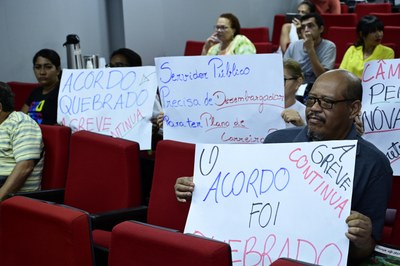 ACORDO
QUEBRADO
A GREVE
CONTINUA
Servidor Público
Precisa de Desembargador
Plano de
Carreira
O
ACORDO
FOI
QUEBRADO
A GREVE
CONTINUA
CÂMA
NOVA